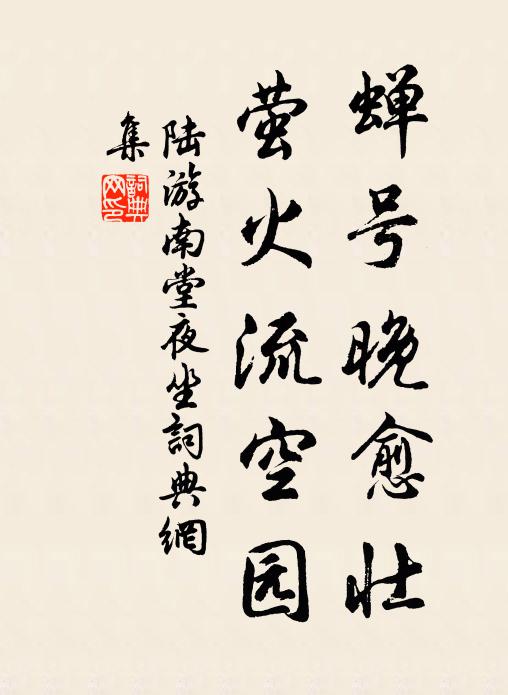 蝉号晚愈壮
萤火流空园
陆游南堂夜坐詞典網
集
詞典
网印